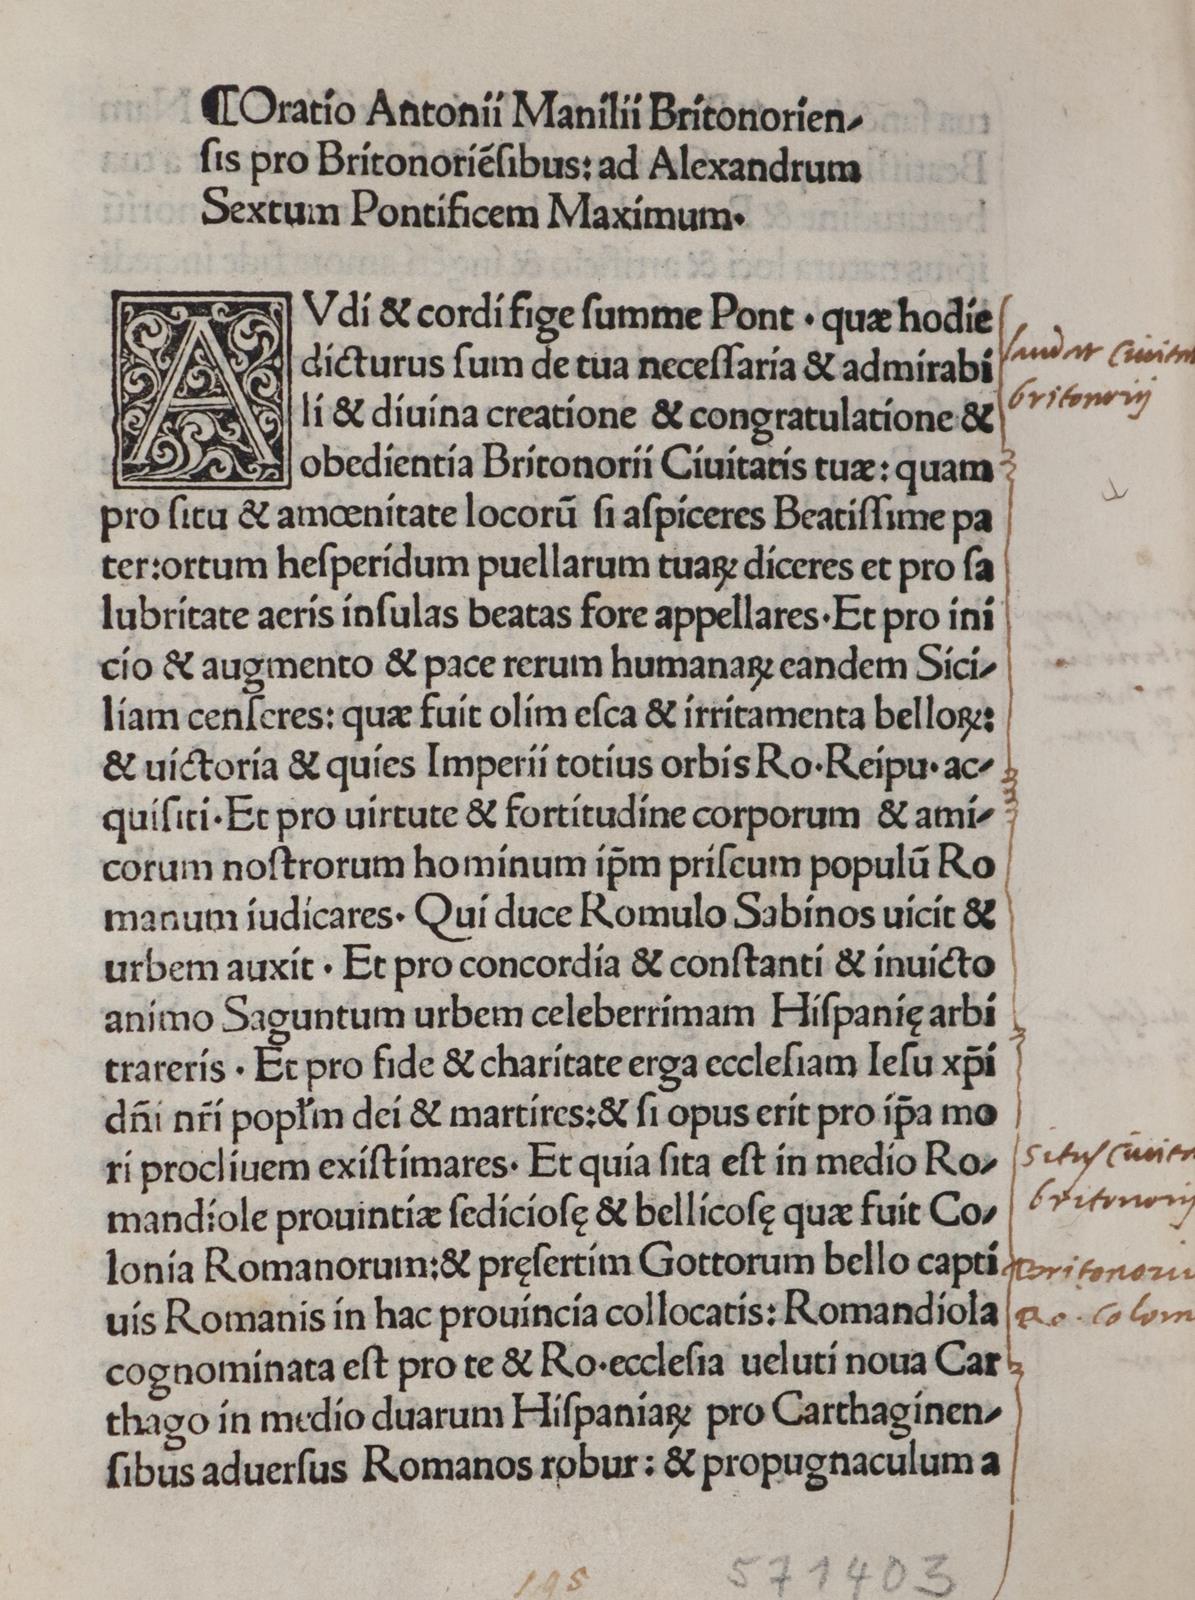 ¶Oratio Antonii Manilii Britonorien-
ſis pro Britonoriēſibus: ad Alexandrum
Sextum Pontificem Maximum.
AVdi & cordi fige ſumme Pont · quæ hodie
dicturus ſum de tua neceſſaria & admirabi
li & diuina creatione & congratulatione &
obedientia Britonorii Ciuitatis tuæ: quam
pro ſitu & amœnitate locorū ſi aſpiceres Beatiſſime pa
ter:ortum heſperidum puellarum tuaꝝ diceres et pro ſa
lubritate aeris inſulas beatas fore appellares·Et pro ini
cio & augmento & pace rerum humanaꝝ eandem Sici-
liam cenſeres: quæ fuit olim eſca & irritamenta belloꝝ:
& uictoria & quies Imperii totius orbis Ro·Reipu·ac-
quiſiti·Et pro uirtute & fortitudine corporum & ami-
corum noſtrorum hominum ip̄m priſcum populū Ro
manum iudicares· Qui duce Romulo Sabinos uicit &
urbem auxit · Et pro concordia & conſtanti & inuicto
animo Saguntum urbem celeberrimam Hiſpanię arbi
traretis · Et pro fide & charitate erga eccleſiam Ieſu xp̄i
dn̄i nr̄i popl'm dei & martires:& ſi opus erit pro ip̄a mo
ri procliuem exiſtimares· Et quia ſita eſt in medio Ro-
mandiole prouintiæ ſedicioſę & bellicoſę quæ fuit Co-
lonia Romanorum:& pręſertim Gottorum bello capti
uis Romanis in hac prouincia collocatis: Romandiola
cognominata eſt pro te & Ro·eccleſia ueluti noua Car
thago in medio duarum Hiſpaniaꝝ pro Carthaginen-
ſibus aduerſus Romanos robur: & propugnaculum a
laudat Ciuitat
britonorij
Situſ Ciuita
britonorij
Britonoriu
Ro. Colon
195
571403